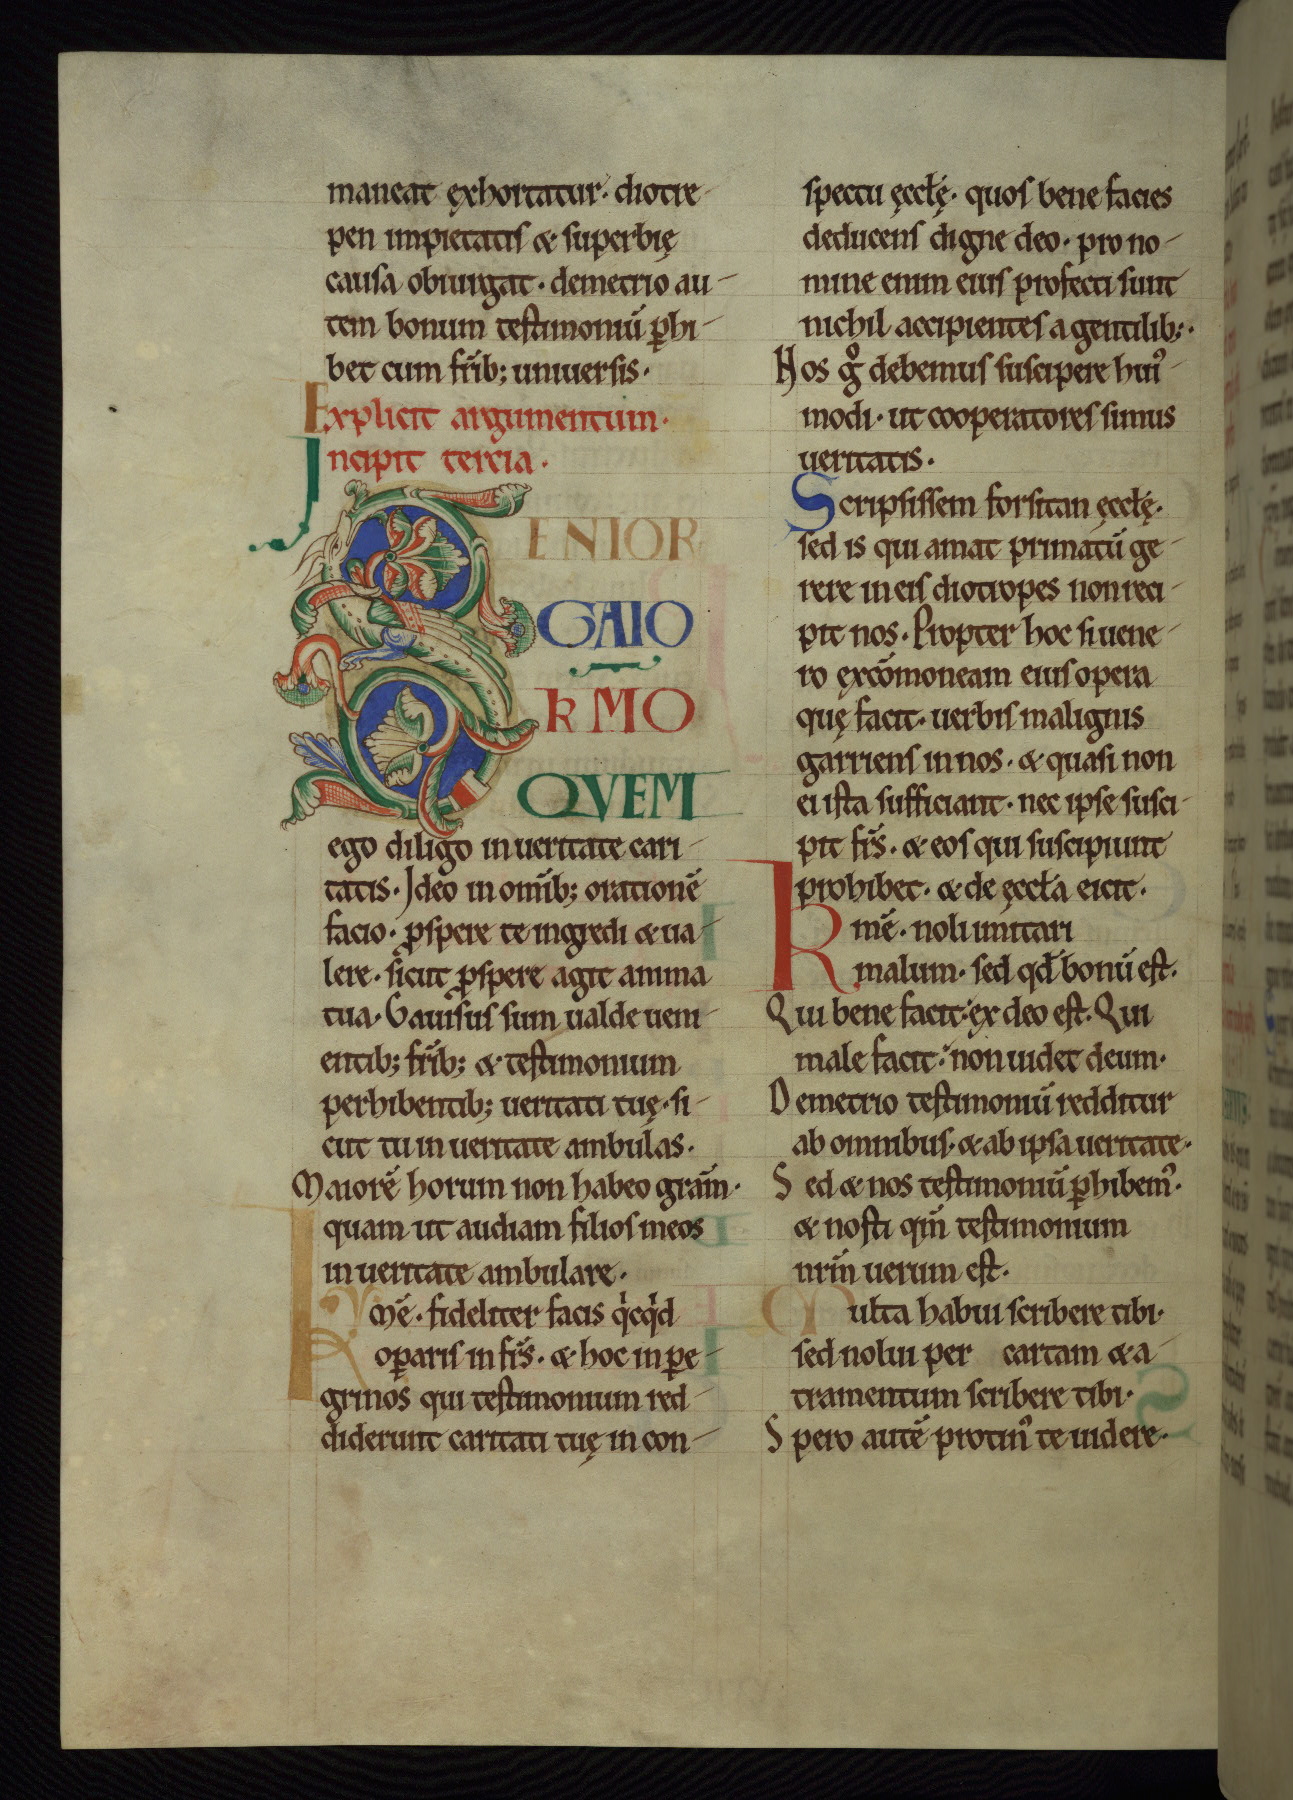 maneat ęxhortatur· diotre-
pen impietatis & superbię
causa obiurgat· demetrio au-
tem bonum testimoniū ꝑhi-
bet cum fr̄ib; uniuersis·
Explicit argumentum·
Incipit tercia·
SENIOR
GAIO
KMO
QVEM
ego diligo in ueritate cari-
tatis· Ideo in om̄ib; orationē
facio· ꝓspere te ingredi & ua-
lere· sicut ꝓspere agit anima
tua· Gauisus sum ualde ueni-
entib; fr̄ib; & testimonium
perhibentib; ueritati tuę· si-
cut tu in ueritate ambulas·
Maiorē horum non habeo gram̄·
quam ut audiam filios meos
in ueritate ambulare·
Kmē· fideliter facis qͥcqͥd
oꝑaris in fr̄s· & hoc in ꝑe-
grinos qui testimonium red-
diderunt caritati tuę in con-
spectu ęccłę· quos bene facies
deducens digne deo· pro no-
mine enim eius profecti sunt
nichil accipientes a gentilib;·
Nos gͦ debemus suscipere huiꝰ-
modi· ut cooperatores simus
ueritatis·
Scripsissem forsitan ęccłę·
sed is qui amat primatū ge-
rere in eis diotropes non reci-
pit nos· Propter hoc si uene-
ro ęxcōmoneam eius opera
quę facit· uerbis malignis
garriens in nos· & quasi non
ei ista sufficiant· nec ipse susci-
pit fr̄s· & eos qui suscipiunt
prohibet· & de ęccła eicit·
Kmē· noli imitari
malum· sed qd̄ bonū est·
Qui bene facit· ex deo est· Qui
male facit· non uidet deum·
Demetrio testimoniū redditur
ab omnibus· & ab ipsa ueritate·
Sed & nos testimoniū ꝑhibemꝰ·
& nosti qm̄ testimonium
nrm̄ uerum est·
Multa habui scribere tibi·
sed nolui per cartam & a-
tramentum scribere tibi·
Spero autē protinꝰ te uidere·